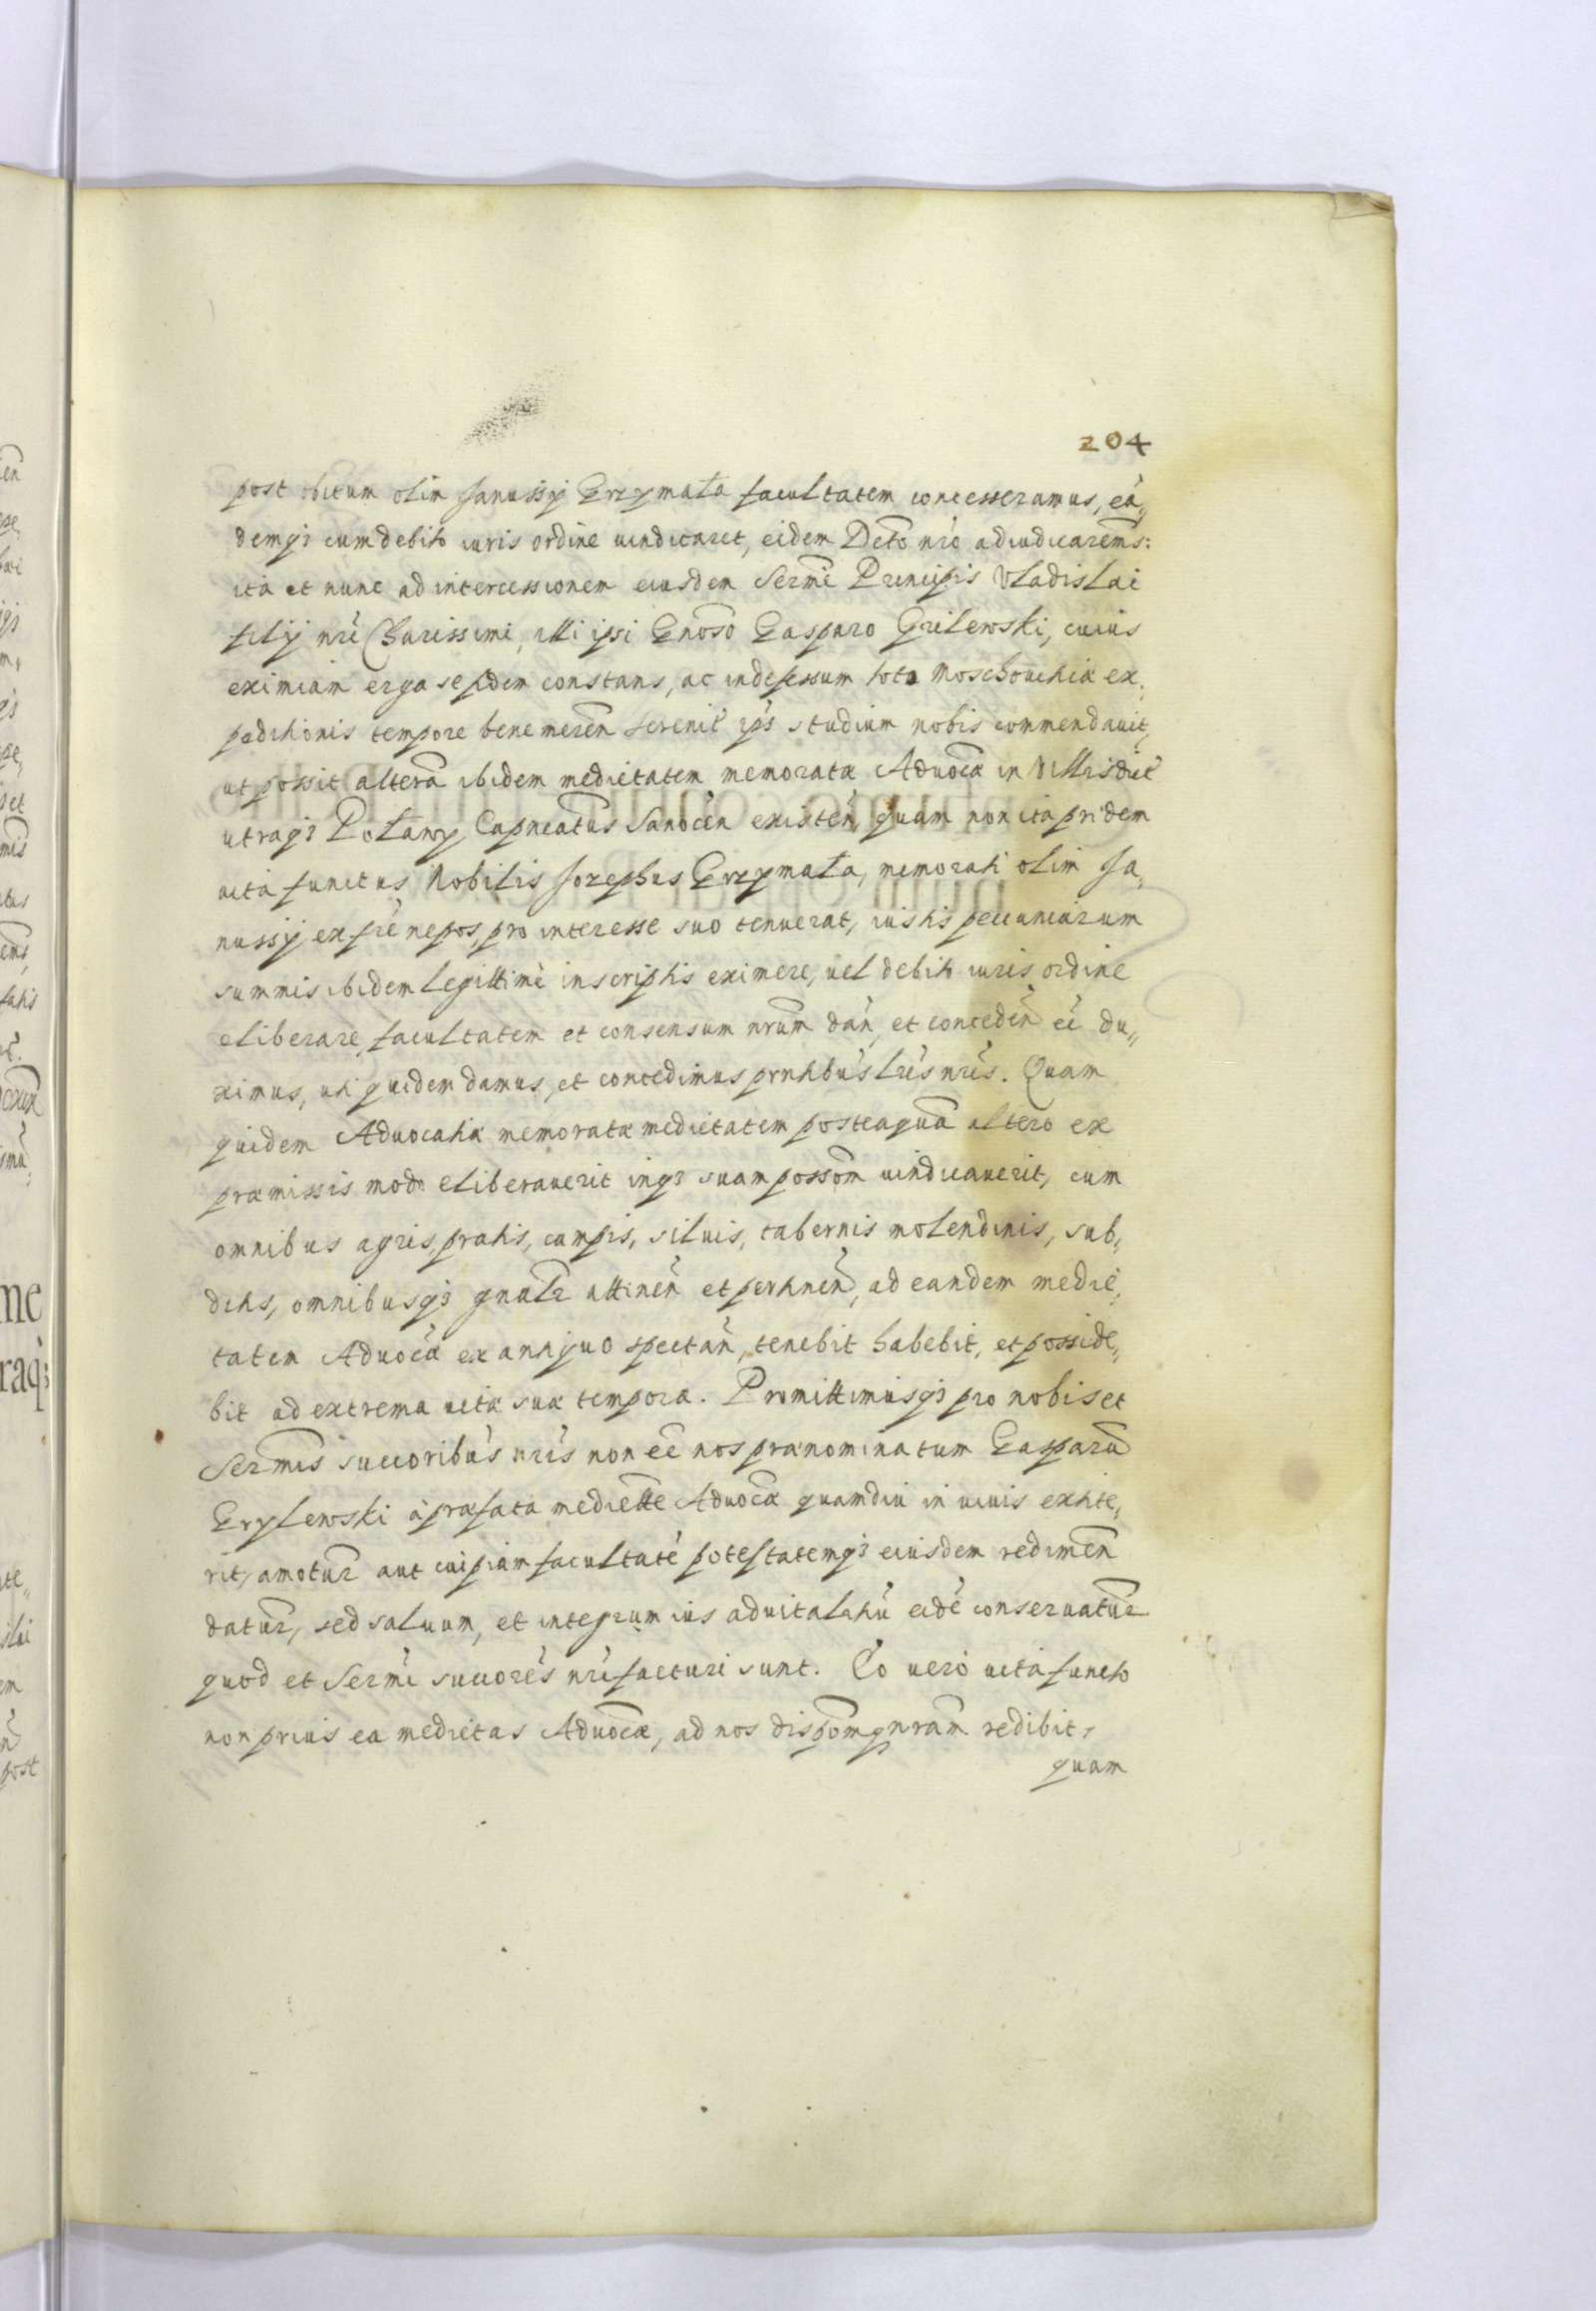 204
post obitum olim Janussÿ Grzymała facultatem concesseramus, eã„
demq₃ cum debito iuris ordine uindicaret, eidem Decto nr̃o adiudicarem̃s:
ita et nunc ad intercessionem eiusdem Serm̃i Principis Vladislai
filÿ nr̃i Charissimi, illi ipsi Gnõso Gasparo Grilewski, cuius
eximiam erga se fidem constans, ac indefessum toto Moschouitiæ ex„
peditionis tempore bene meren̄ sereniť ip̃s studium nobis commendauit,
ut possit alterã ibidem medietatem memoratæ Aduocæ in Villis dict̃
utraq₃ Polany, Capneatũs Sanocen̄ existen̄, quam non ita pridem
uita functus Nobilis Josephus Grzymała, memorati olim Ja„
nussÿ ex fr̃e nepos, pro interesse suo tenuerat, iustis pecuniarum
summis ibidem legittimè inscriptis eximere, uel debito iuris ordine
eliberare, facultatem et consensum nr̃um dan̄, et conceden̄ eẽ du„
ximus, uti quidem damus, et concedimus pr̃ntibus lr̃is nr̃is. Quam
quidem Aduocatiæ memoratæ medietatem posteaquã altero ex
præmissis modo eliberauerit inq₃ suam poss̃om uindicauerit, cum
omnibus agris, pratis, campis, siluis, tabernis molendinis, sub„
ditis, omnibusq₃ gnalr̃ attinen̄ et pertinen̄, ad eandem medie„
tatem Aduocæ ex antiquo spectan̄, tenebit habebit, et posside„
bit ad extrema uitæ suæ tempora. Promittimusq₃ pro nobis et
Serm̃is succoribus nr̃is non eẽ nos prænominatum Gasparũ
Grylewski à præfata medieťte Aduocæ quamdiu in uiuis extite„
rit, amotur̃ aut cuipiam facultatẽ potestatemq₃ eiusdem redimen̄
datur̃, sed saluum, et integrum ius aduitalitiũ eidẽ conseruatur̃
quod et Serm̃i succores nr̃i facturi sunt. Eo uero uita functo
non prius ea medietas Aduocæ, ad nos disp̃omq₃ nr̃am redibit,
quam